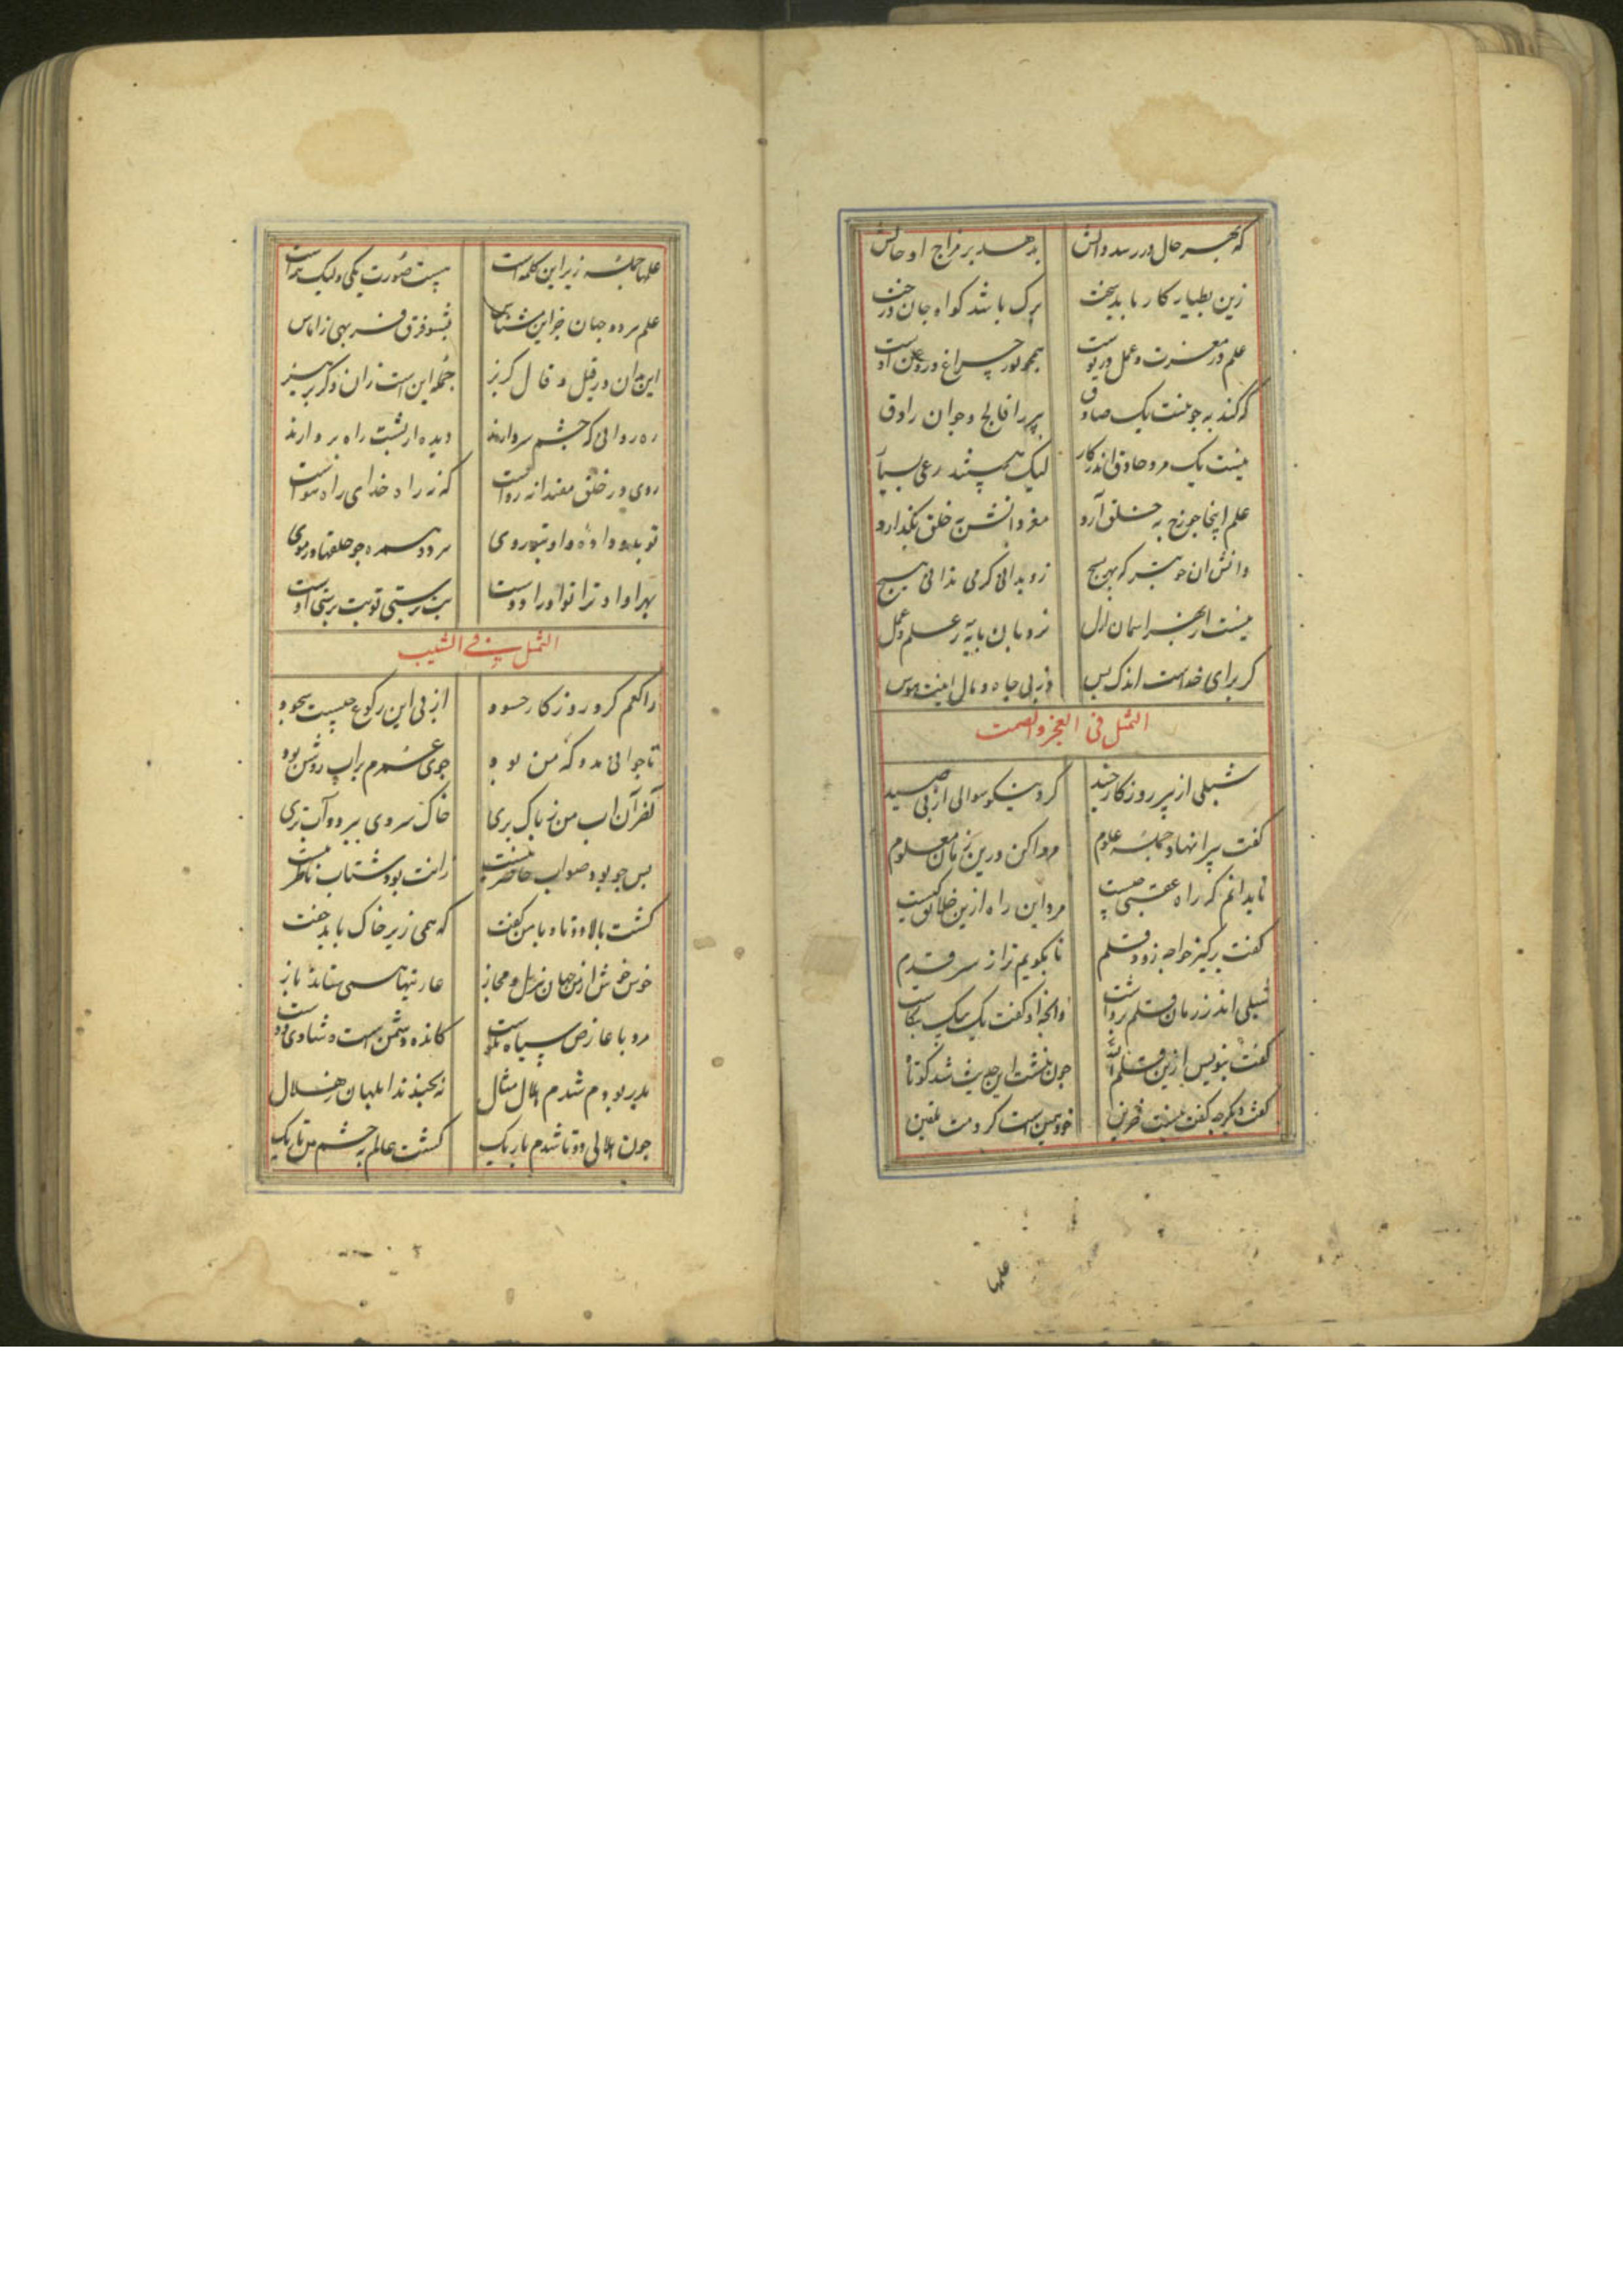 که بهر حال در رسد دانش بد هد بر مزاج او جانش
زین بطیار کار باید سخت برک باشد کواه جان درخت
علم در معرفت و عمل در پوست همچو نور چراغ و روغن اوست
که کند به جو نیست یک صادق پیر را فالج و جوان را دق
نیست یک مرد حاذق اندر کار لیک هستند مدعی بسیار
علم اینجا جو رخ به خلق آرد مغز دانش به خلق نگذارد
دانش ان خوبتر که بهر بسیج زو بدانی که می ندانی هیچ
نیست از بهر اسمان ازل نردبان پایه ز علم و عمل
کر برای خداست اندک بس ور پی جاه و مال اینت هوس
التمثل فی العجز والصمت
شبلی از پیر روزکار جنید کرد نیکو سوالی از پی صید
کفت پیرا نهاد جمله علوم مر مرا کن درین زمان معلوم
تا بدانم که راه عقبی چیست مرد این راه ازین خلایق کیست
کفت برکیر خواجه زود قلم تا بکویم ترا ز سر قدم
شبلی اندر زمان قلم برداشت وانجه او کفت یک بیک بنکاشت
کفت بنویس ازین قلم الله جون نبشت این حدیث شد کوتاه
کفت دیکر جه کفت نیست جزین خود همین است کردمت تلقین
علمها
علمها جمله زیر این کلمه است هست صورت یکی ولیک همه است
علم هر دو جهان جز این مشناس بشنو فرق فربهی ز اماس
این بدان ور قیل و قال کریز جمله این است زان دکر پرهیز
ره روانی که چشم سر دارند دیده از پشت راه بر دارند
روی در خلق مقتدا نه رواست که نه راه خدای راه هواست
تو بدو داده و او بتو روی سر دو همره جو حلقها در موی
بهر او او ترا تو او را دوست بت پرستی تو بت پرستی اوست
التمثل فی الشیب
راکعم کرد روزکار حسود از پی این رکوع جیست سجود
تا جوانی مدد که من بود جوی عمرم بر آب روشن بود
کفر آن اب من ز پاک بری خاک سردی ببرد و آب تری
پس جو بود صواب حاضر نیست رانت بود شتاب ناظر نیست
کشت بالا دوتا و با من کفت که همی زیر خاک باید خفت
خوش خوش از من جهان هزل و مجاز عاریتها همی ستاند باز
مرد با عارض سیاه نکوست کانده دشمن است و شادی دوست
بدر بودم شدم هلال مثال نه بخندند ابلهان ز هلال
جون هلالی دوتا شدم باریک کشت عالم به چشم من تاریک